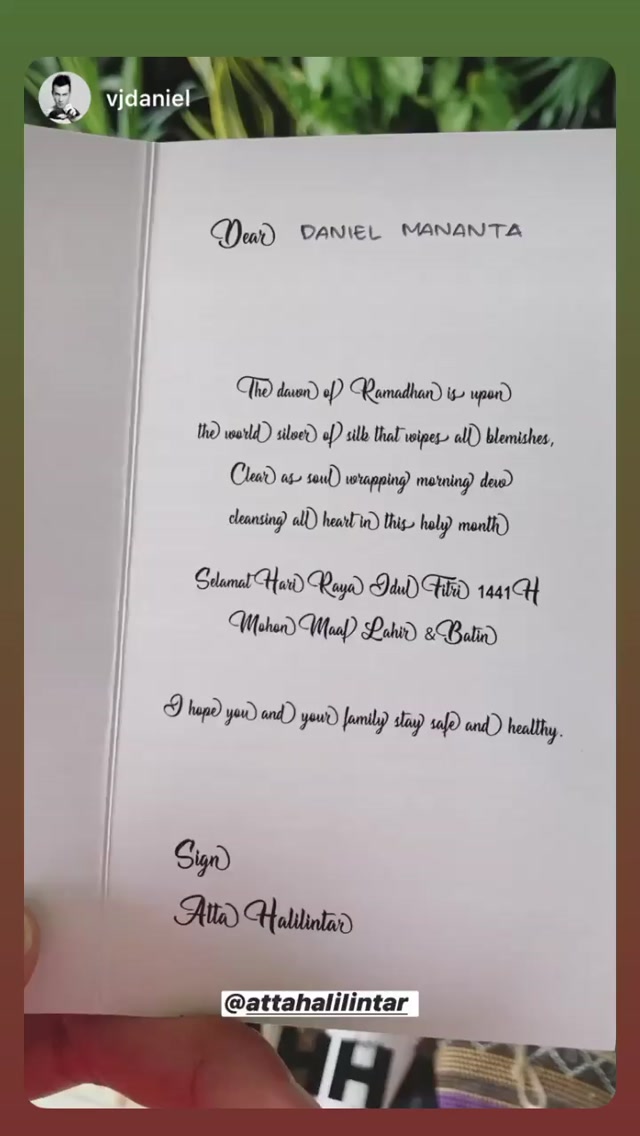 vjdaniel
Dear DANIEL MANANTA
The dawn of Ramadhan is upon
the world silver of silk that wipes all blemishes,
Clear as soul wrapping morning dew
cleansing all heart in this holy month
Selamat Hari Raya Idul Fitri 1441 H
Mohon Maaf Lahir & Batin
I hope you and your family stay safe and healthy.
Sign
Atta Halilintar
@attahalilintar
H